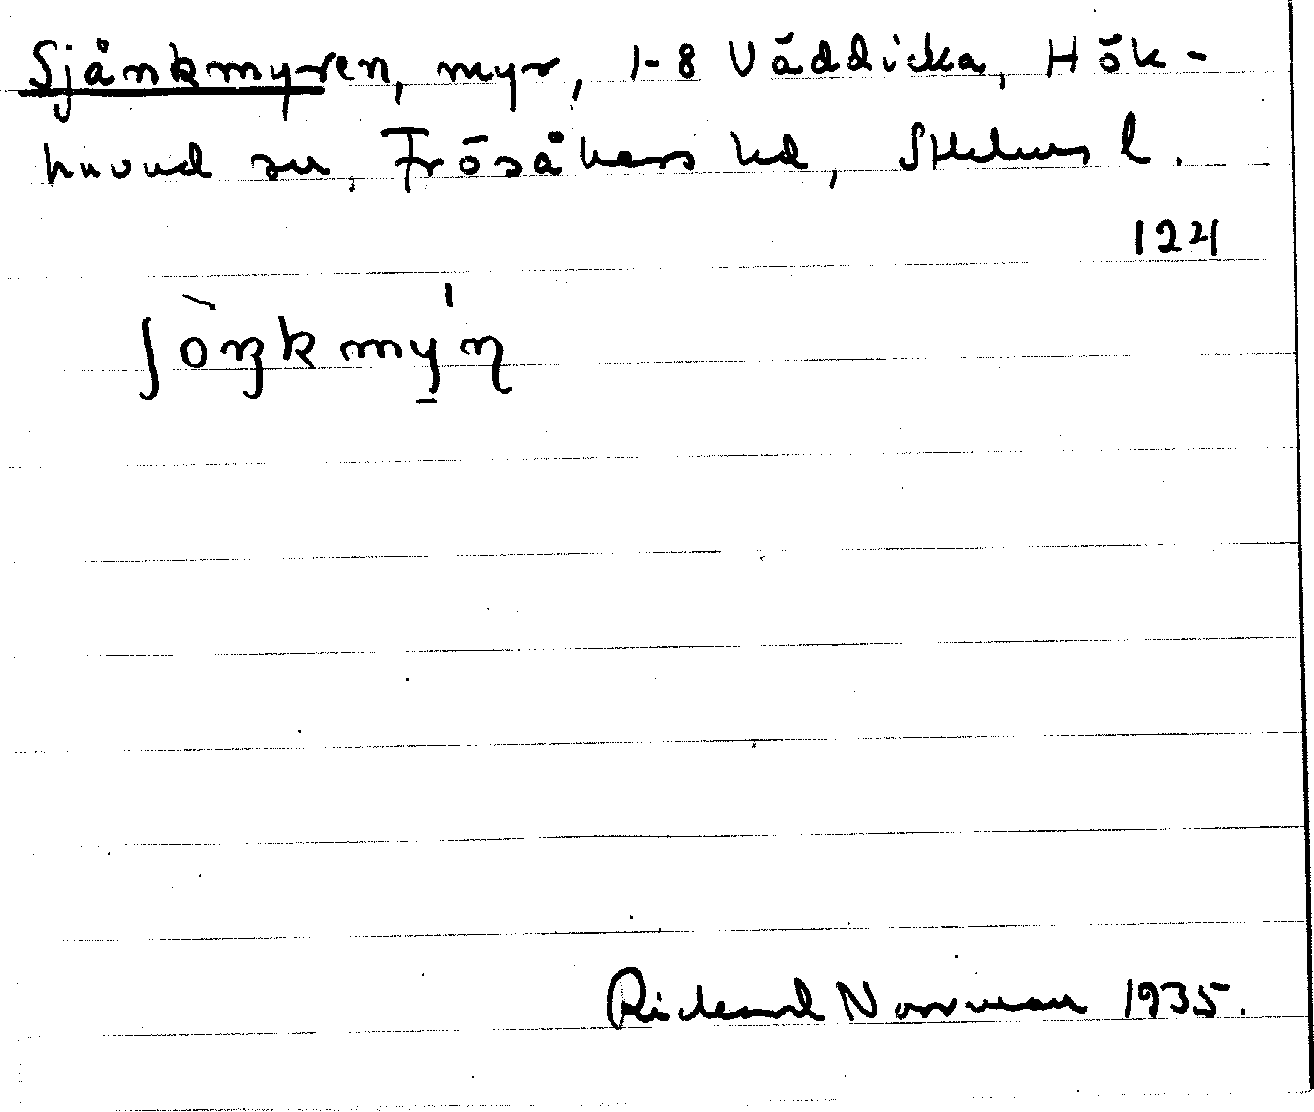 Sjånkmyren, myr, 1-8 Väddicka, Hök-
huvud sn, Frösåkers hd, Sthlms l.
124
ʃòŋkmy̠ˈn
Rickard Norrman 1935.